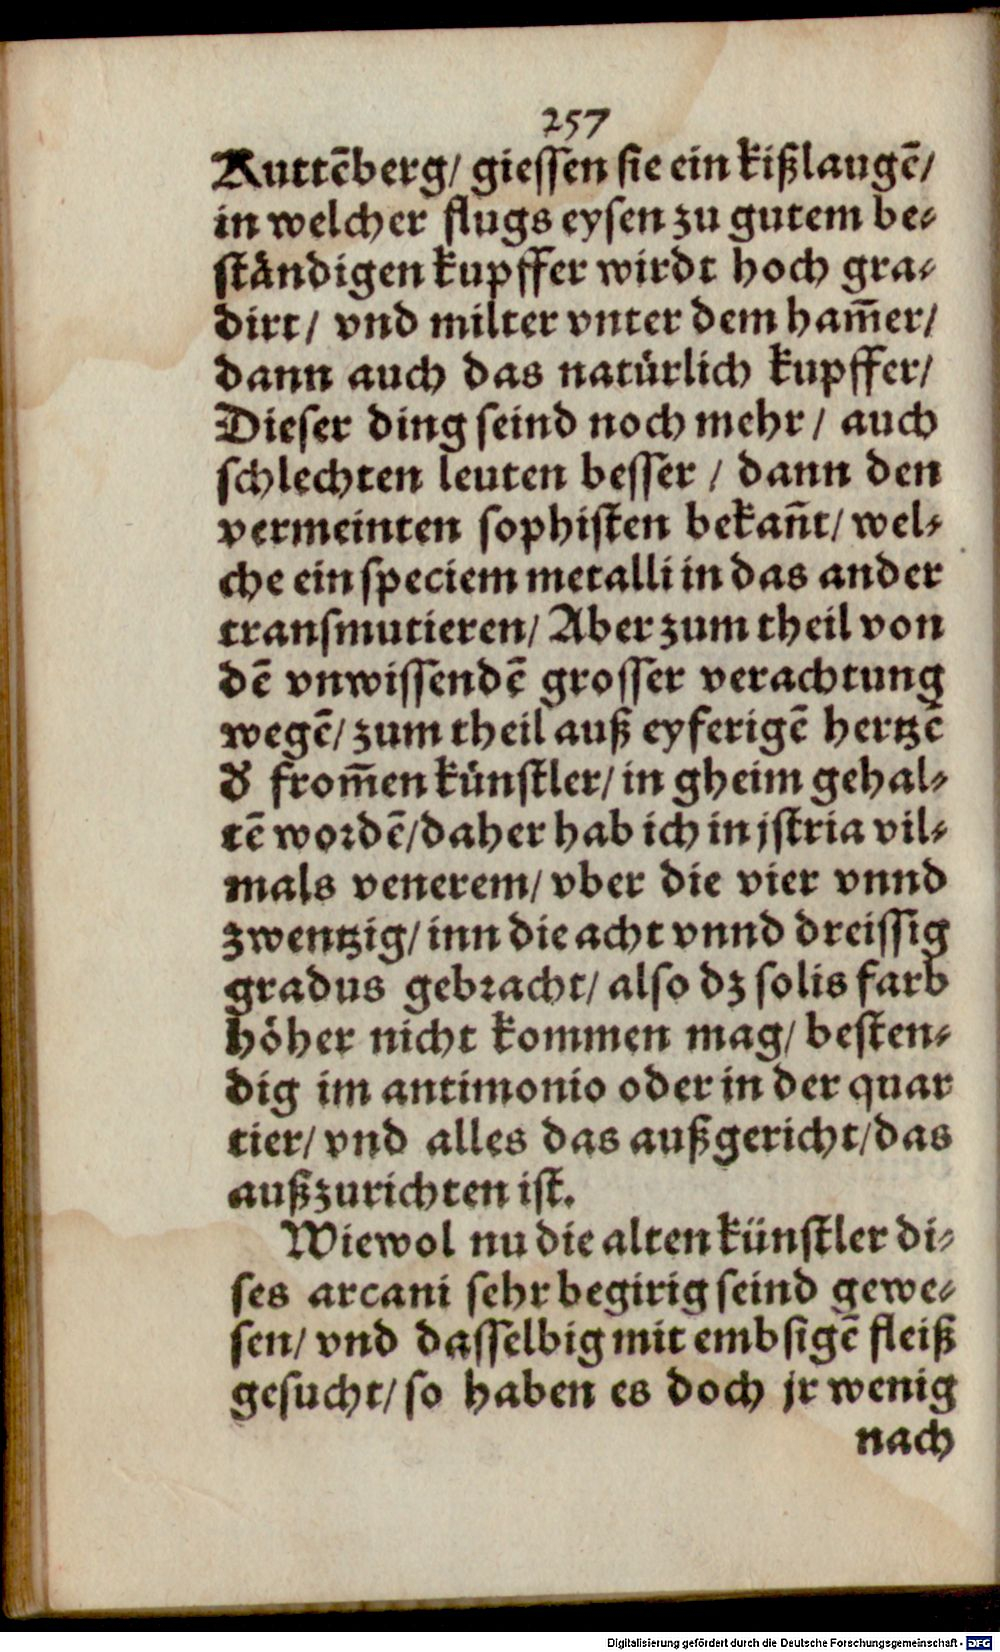 257
Kuttēberg/ giessen sie ein kißlaugē/
in welcher flugs eysen zu gutem be-
ständigen kupffer wirdt hoch gra-
dirt/ vnd milter vnter dem ham̄er/
dann auch das natürlich kupffer/
Dieser ding seind noch mehr/ auch
schlechten leuten besser/ dann den
vermeinten sophisten bekan̄t/ wel-
che ein speciem metalli in das ander
transmutieren/ Aber zum theil von
dē vnwissendē grosser verachtung
wegē/ zum theil auß eyferigē hertzē
d' from̄en künstler/ in gheim gehal-
tē wordē/ daher hab ich in jstria vil-
mals venerem/ vber die vier vnnd
zwentzig/ inn die acht vnnd dreissig
gradus gebracht/ also dz solis farb
höher nicht kommen mag/ besten-
dig im antimonio oder in der quar
tier/ vnd alles das außgericht/ das
außzurichten ist.
Wiewol nu die alten künstler di-
ses arcani sehr begirig seind gewe-
sen/ vnd dasselbig mit embsigē fleiß
gesucht/ so haben es doch jr wenig
nach
Digitalisierung gefördert durch die Deutsche Forschungsgemeinschaft - DFG